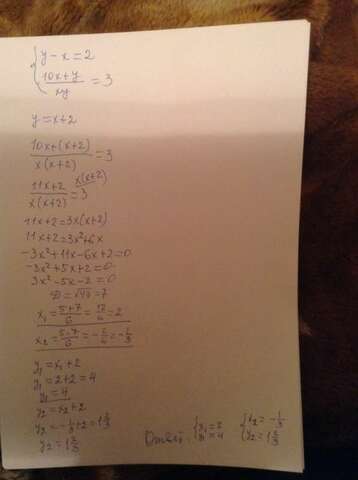 y - x = 2
(10x + y)/(xy) = 3
y = x + 2
(10x + (x + 2))/(x(x + 2)) = 3
(11x + 2)/(x(x + 2)) = 3 x(x + 2)
11x + 2 = 3x(x + 2)
11x + 2 = 3x² + 6x
-3x² + 11x - 6x + 2 = 0
-3x² + 5x + 2 = 0
3x² - 5x - 2 = 0
D = √49 = 7
x₁ = (5 + 7)/6 = 12/6 = 2
x₂ = (5 - 7)/6 = -2/6 = -1/3
y₁ = x₁ + 2
y₁ = 2 + 2 = 4
y₁ = 4
y₂ = x₂ + 2
y₂ = -1/3 + 2 = 1 2/3
y₂ = 1 2/3
Ответ: { x₁ = 2 y₁ = 4 { x₂ = -1/3 y₂ = 1 2/3